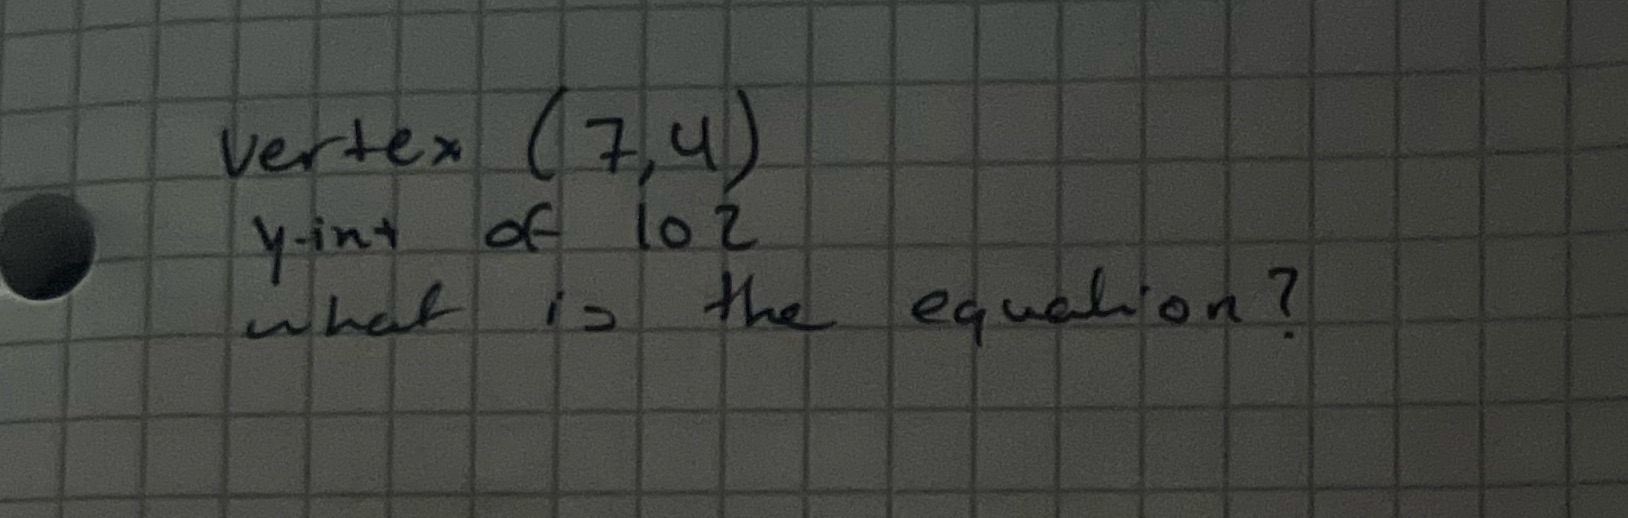 vertex (7,4)
y-int of 102
what is the equation?